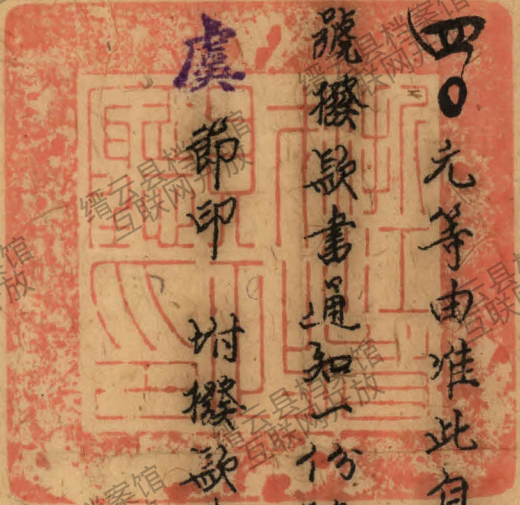 四〇元等由准此自
號撥款書通知一份
虞節印 坿撥款
缙云县档案馆
互联网开放